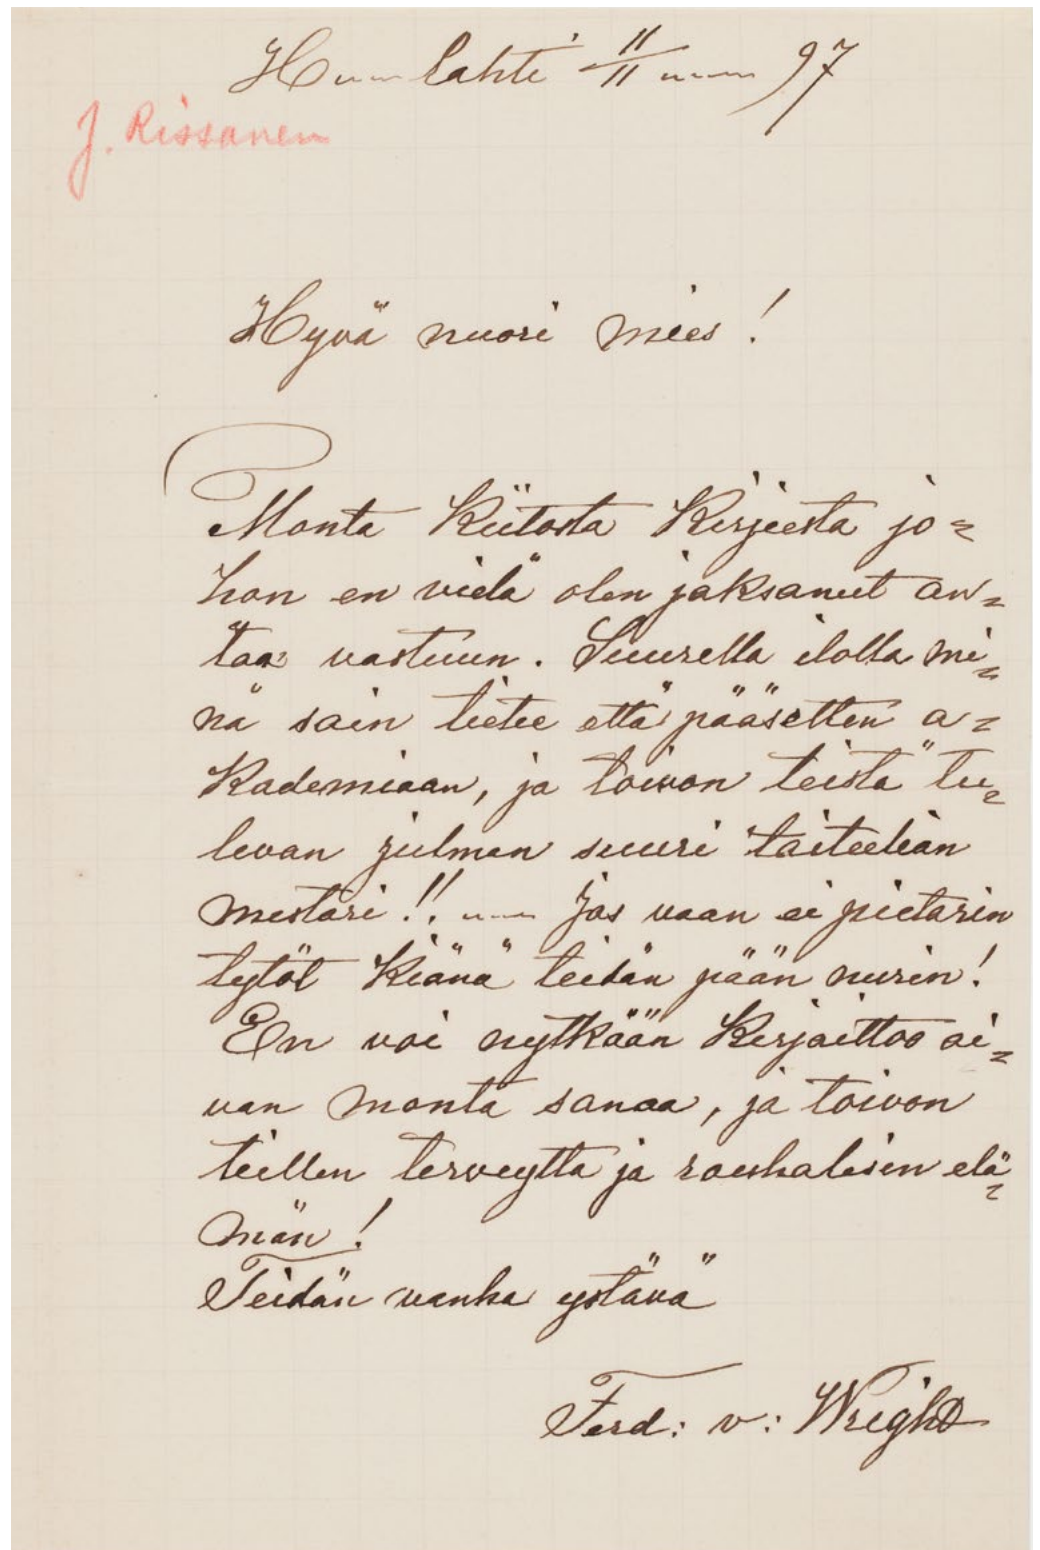 Haminalahti 11/11 97
J. Rissanen
Hyvä nuori mies!
Monta Kiitosta Kirjeesta jo=
hon en vielä olen jaksanut an=
taa vastuun. Suurella ilolla mi=
nä sain tietee että pääsetten a=
kademiaan, ja toivon teistä tu=
levan julman suuri taiteelian
mestari!! — Jos vaan ei pietarin
tytöt Kiänä teidän pään nurin!
En voi nytkään Kirjaittoo ai=
van monta sanaa, ja toivon
teillen terveytta ja rauhalisen elä=
män!
Teidän vanha ystävä
Ferd: v: Wright